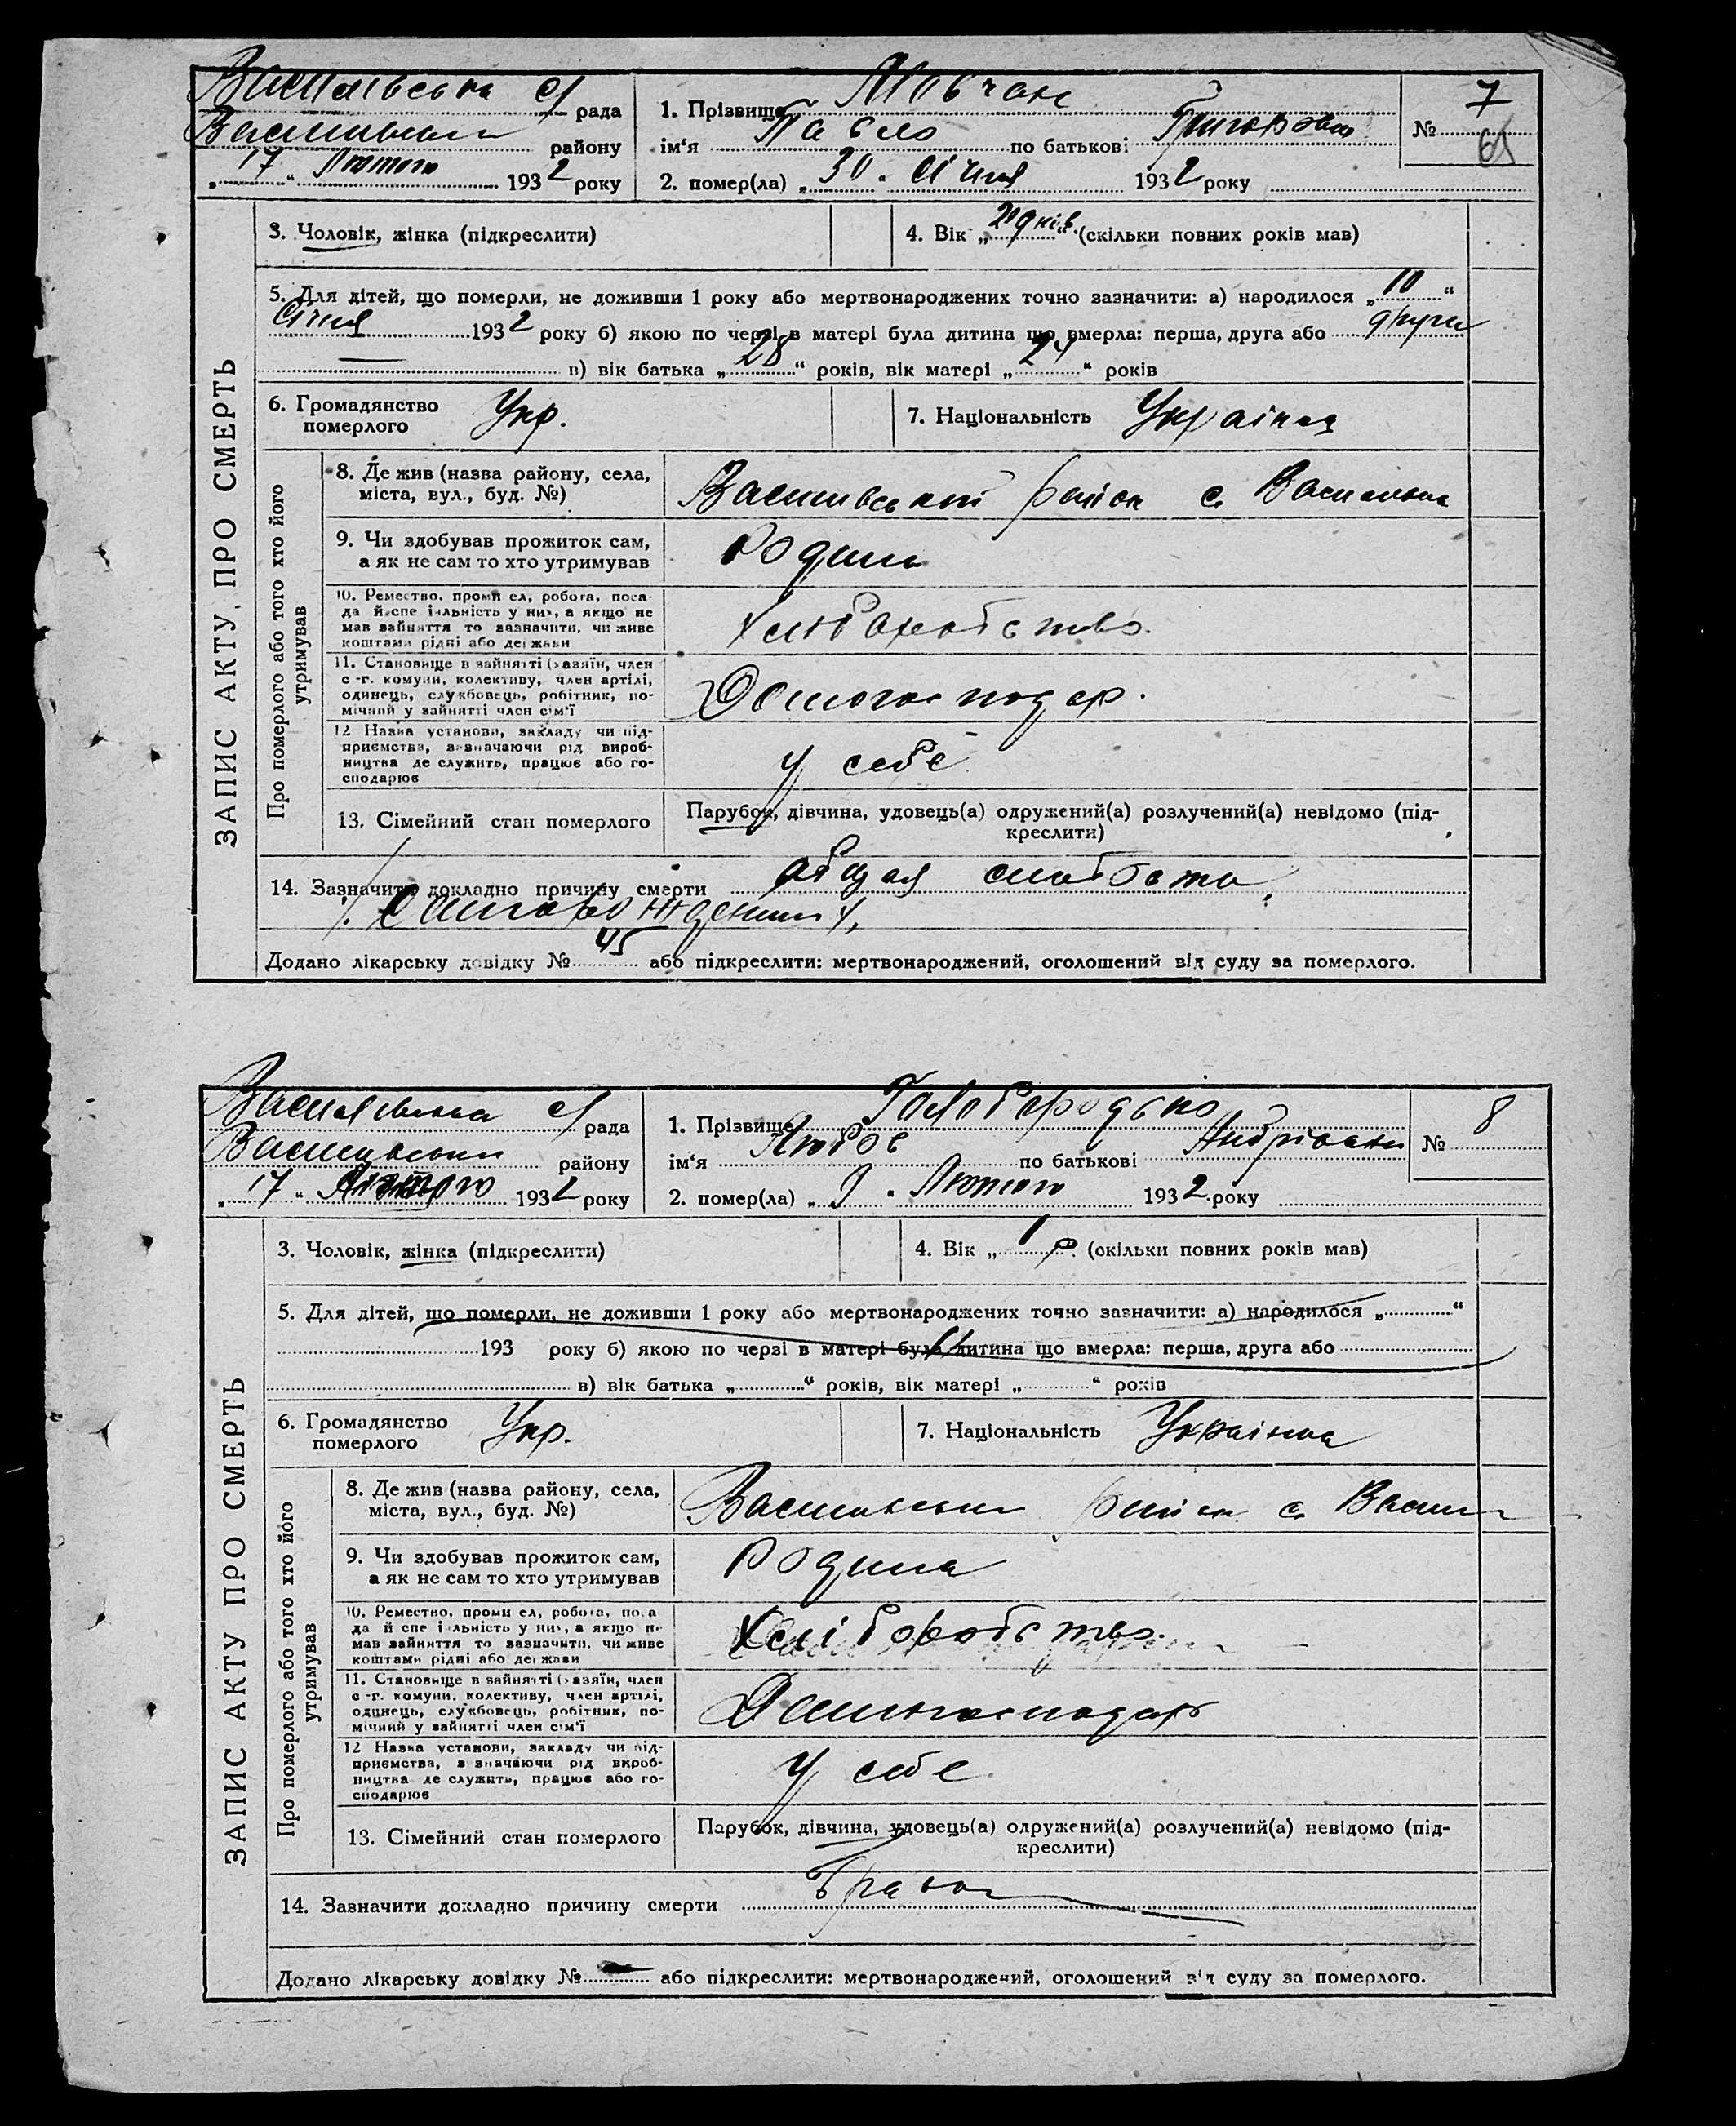 Василівська с/рада 1. Прізвище Мовчан № 7
Василівськ району ім‘я Павло по батькові Григорович 65
„17“ Лютого 1932 року 2. помер(ла) „30“ Січня 1932 року
ЗАПИС АКТУ ПРО СМЕРТЬ
3. Чоловік, жінка (підкреслити) 4. Вік „20 днів“ (скільки повних років мав)
5. Для дітей, що померли, не доживши 1 року або мертвонароджених точно зазначити: а) народилося „10“
Січня 1932 року б) якою по черзі в матері була дитина що вмерла: перша, друга або друга
в) вік батька „28“ років, вік матері „24“ років
6. Громадянство померлого Укр. 7. Національність Українец
Про померлого або того хто його утримував
8. Де жив (назва району, села,
міста, вул., буд. №) Василівський район с. Василівка
9. Чи здобував прожиток сам,
а як не сам то хто утримував Родина
10. Ремество, промисел, робота, поса-
да й спеціальність у них, а якщо не
мав зайняття то зазначити, чи живе
коштами рідні або держави Хліборобство.
11. Становище в зайнятті (хазяїн, член
с.-г. комуни, колективу, член артілі,
одинець, службовець, робітник, по-
мічний у зайнятті член сім‘ї Домогосподар.
12 Назва установи, закладу чи під-
приємства, зазначаючи рід вироб-
ництва де служить, працює або го-
сподарює У себе
13. Сімейний стан померлого Парубок, дівчина, удовець(а) одружений(а) розлучений(а) невідомо (під-
креслити)
14. Зазначити докладно причину смерти общая слабость
Додано лікарську довідку № 45 або підкреслити: мертвонароджений, оголошений від суду за померлого.
Василівська с/рада 1. Прізвище Голобородько № 8
Василівськ району ім‘я Любов по батькові Андріевна
„17“ Лютого 1932 року 2. помер(ла) „9“ Лютого 1932 року
ЗАПИС АКТУ ПРО СМЕРТЬ
3. Чоловік, жінка (підкреслити) 4. Вік „1 р.“ (скільки повних років мав)
5. Для дітей, що померли, не доживши 1 року або мертвонароджених точно зазначити: а) народилося „ “
193 року б) якою по черзі в матері була дитина що вмерла: перша, друга або
в) вік батька „ “ років, вік матері „ “ років
6. Громадянство померлого Укр. 7. Національність Українка
Про померлого або того хто його утримував
8. Де жив (назва району, села,
міста, вул., буд. №) Василівськи район с. Васил
9. Чи здобував прожиток сам,
а як не сам то хто утримував Родина
10. Ремество, промисел, робота, поса-
да й спеціальність у них, а якщо не
мав зайняття то зазначити, чи живе
коштами рідні або держави Хліборобство.
11. Становище в зайнятті (хазяїн, член
с.-г. комуни, колективу, член артілі,
одинець, службовець, робітник, по-
мічний у зайнятті член сім‘ї Домогосподар
12 Назва установи, закладу чи під-
приємства, зазначаючи рід вироб-
ництва де служить, працює або го-
сподарює У себе
13. Сімейний стан померлого Парубок, дівчина, удовець(а) одружений(а) розлучений(а) невідомо (під-
креслити)
14. Зазначити докладно причину смерти
Додано лікарську довідку № або підкреслити: мертвонароджений, оголошений від суду за померлого.